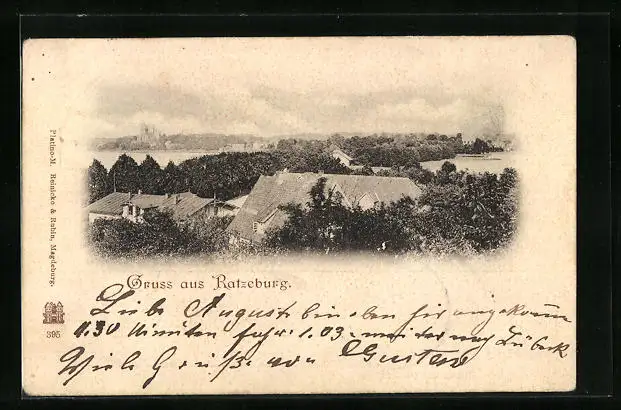 Platino-M. Reinicke & Rubin, Magdeburg.
395
Gruss aus Ratzeburg.
Liebe Auguste bin eben hir angekomm
11.30 Minuten fahr 1.03. weiter nag Lübeck
Viele Grüße von Gusten